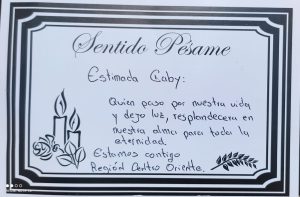 Sentido Pésame
Estimada Gaby:
Quien paso por nuestra vida
y dejo luz, resplandecera en
nuestra alma para toda la
eternidad.
Estamos contigo
Región Centro Oriente.